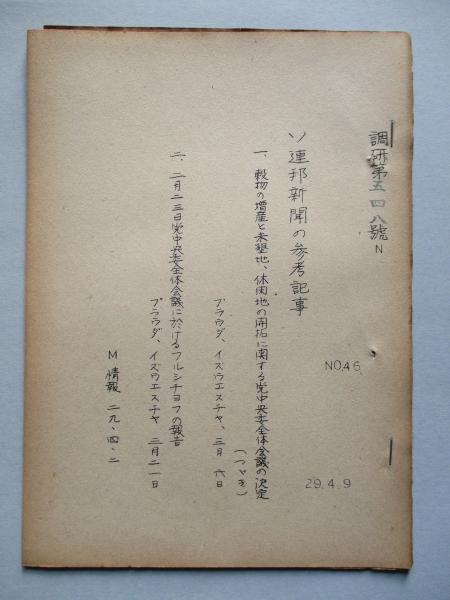 調研第五四八號
N
NO.46
29.4.9
ソ連邦新聞の参考記事
一、穀物の増産と未墾地、休閑地の開拓に関する党中央委全体会議の決定
(つゞき)
プラウダ、イズヴエスチヤ、三月六日
二、二月二三日党中央委全体会議に於けるフルシチョフの報告
プラウダ、イズヴエスチヤ 三月二一日
M情報 二九・四・二